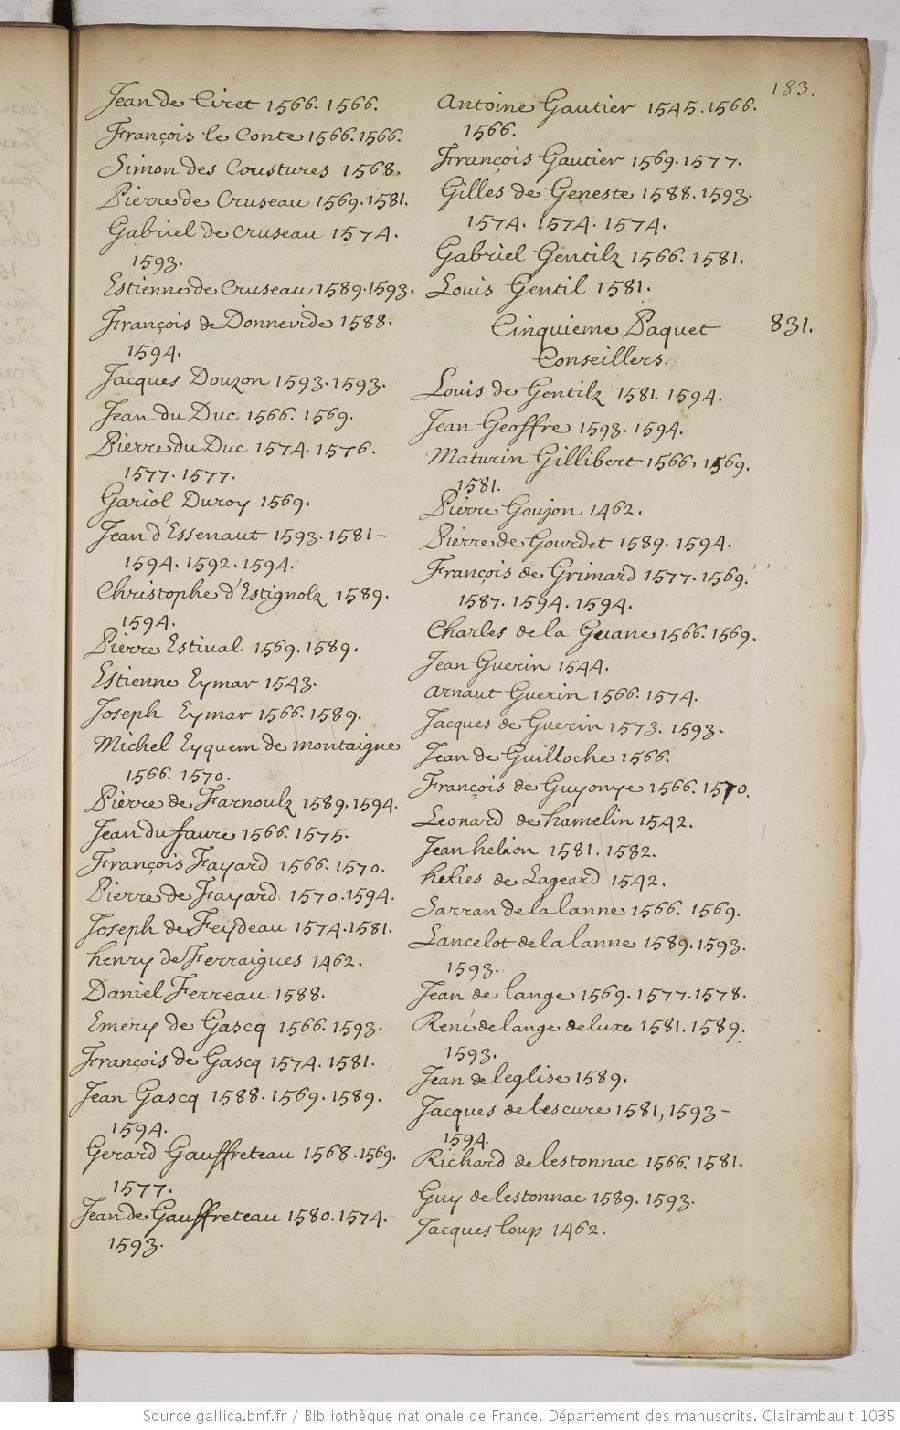 183.
Jean de Ciret 1566. 1566.
François le Conte 1566. 1566.
Simon des Coustures 1568.
Pierre de Cruseau 1569. 1581.
Gabriel de Cruseau 1574.
1593.
Estienne de Cruseau 1589. 1593.
François de Donnevide 1588.
1594.
Jacques Douzon 1593. 1593.
Jean du Duc 1566. 1569.
Pierre du Duc 1574. 1576.
1577. 1577.
Gariol Duroy 1569.
Jean d'Essenaut 1593. 1581-
1594. 1592. 1594.
Christophe d'Estignolz 1589.
1594.
Pierre Estival 1569. 1589.
Estienne Eymar 1543.
Joseph Eymar 1566. 1589.
Michel Eyquem de montaigne
1566. 1570.
Pierre de Farnoulz 1589. 1594.
Jean du faure 1566. 1575.
François Fayard 1566. 1570.
Pierre de Fayard 1570. 1594.
Joseph de Feydeau 1574. 1581.
henry de Ferraigues 1462.
Daniel Ferreau 1588.
Emery de Gascq 1566. 1593.
François de Gascq 1574. 1581.
Jean Gascq 1588. 1569. 1589.
1594.
Gerard Gauffreteau 1568. 1569.
1577.
Jean de Gauffreteau 1580. 1574.
1593.
Antoine Gautier 1545. 1566.
1566.
François Gautier 1569. 1577.
Gilles de Geneste 1588. 1593.
1574. 1574. 1574.
Gabriel Gentilz 1566. 1581.
Louis Gentil 1581.
Cinquieme Paquet 831.
Conseillers.
Louis de Gentilz 1581. 1594.
Jean Geoffre 1593. 1594.
Maturin Gillibert 1566. 1569.
1581.
Pierre Goujon 1462.
Pierre de Gourdet 1589. 1594.
François de Grimard 1577. 1569.
1587. 1594. 1594.
Charles de la Guane 1566. 1569.
Jean Guerin 1544.
Arnaut Guerin 1566. 1574.
Jacques de Guerin 1573. 1593.
Jean de Guilloche 1566.
François de Guyonye 1566. 1570.
Leonard de hamelin 1542.
Jean helion 1581. 1582.
helies de Lageard 1542.
Sarran de la lanne 1566. 1569.
Lancelot de la lanne 1589. 1593.
1593.
Jean de lange 1569. 1577. 1578.
René de lange de luxe 1581. 1589.
1593.
Jean de leglise 1589.
Jacques de lescure 1581, 1593-
1594.
Richard de lestonnac 1566. 1581.
Guy de lestonnac 1589. 1593.
Jacques loup 1462.
Source gallica.bnf.fr / Bibliothèque nationale de France. Département des manuscrits. Clairambault 1035